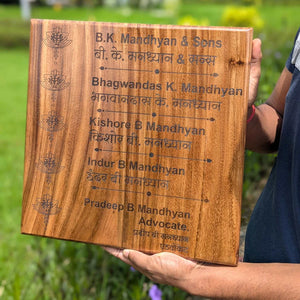 B.K. Mandhyan & Sons
बी. के. मनध्यान & सन्स
Bhagwandas K. Mandhyan
भगवानदास के. मनध्यान
Kishore B Mandhyan
किशोर बी मनध्यान
Indur B Mandhyan
इंदुर बी मनध्यान
Pradeep B Mandhyan
Advocate.
प्रदीप बी मनध्यान
एडवोकेट